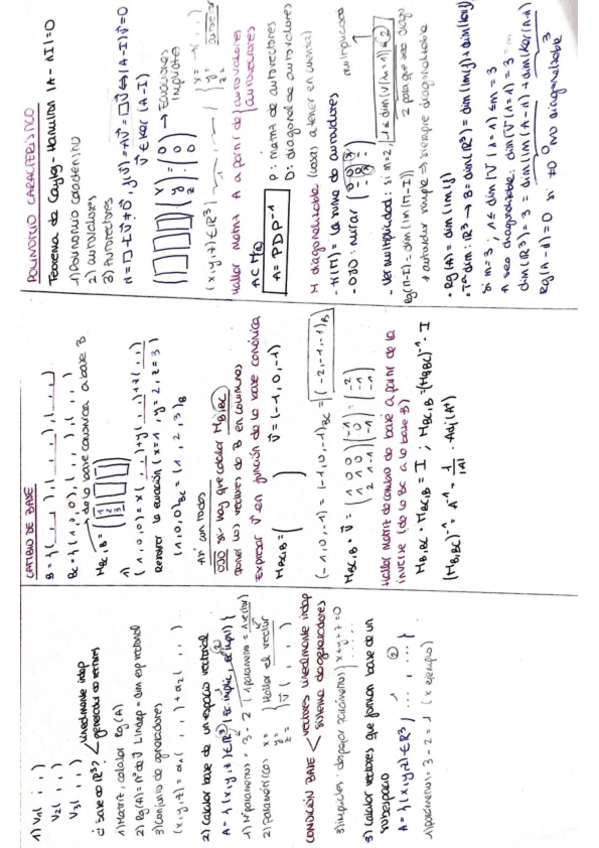 1) V₁ ( , , )
V₂ ( , , )
V₃ ( , , )
¿ Base de ℝ³? < linealmente indep
generador de vectores
1) Matriz, calcular Rg(A)
2) Rg(A) = nº de V Lindep = dim esp vectorial
3) Conjunto de generadores
(x, y, z) = a₁( , , ) + a₂( , , ) ...
2) Calcular base de un espacio vectorial
A = { (x, y, z) ∈ ℝ³ / Ec. implic, ec. impl }
1) Nº parametros = 3 - 2 (1 parametro = 1 vector)
2) Paramétricas x= y= z= } Hallar el vector
v̄ ( , , )
CONDICIÓN BASE < vectores linealmente indep
sistema de generadores
3) Implícitas: despejar parámetros x+y+z=0
3) Calcular vectores que forman base de un
subespacio
A = { (x,y,z) ∈ ℝ³ / ... , ... }
1) parámetros = 3 - 2 = 1 (x ejemplo)
CAMBIO DE BASE
B = { ( , , ), ( , , ), ( , , )
Bc = { (1, 0, 0), ( , , ), ( , , )
de la base canónica a base B
M_BC,B = ( 1 2 3 )
1)
(1, 0, 0) = x ( , , ) + y ( , , ) + z ( , , )
Resolver la ecuación (x=1, y=2, z=3)
(1, 0, 0)_BC = (1, 2, 3)_B
Así con todos
OJO si hay que calcular M_B,BC
poner los vectores de B en columnas
Expresar v̄ en función de la base canónica
M_BC,B = ( ) v̄ = (-1, 0, -1)
(-1, 0, -1) = (-1, 0, -1)_BC = (-2, -1, -1)_B
M_BC,B · v̄ =
Hallar matriz de cambio de base a partir de la
inversa (de la Bc a la base B)
M_B,BC · M_BC,B = I ; M_BC,B = (M_B,BC)⁻¹ · I
(M_B,BC)⁻¹ = A⁻¹ = 1/|A| · Adj(Aᵗ)
POLINOMIO CARACTERÍSTICO
Teorema de Cayley - Hamilton |A - λI| = 0
1) Polinomio característico
2) autovalores
3) Autovectores
v̄ ∈ Ker (A - I)
(x y z) = (0 0 0) → Ecuaciones
implícitas
(x, y, z) ∈ ℝ³
autovector
Hallar matriz A a partir de autovalores
autovectores
A = PDP⁻¹
P: matriz de autovectores
D: diagonal de autovalores
M diagonalizable (cosas a tener en cuenta)
- OJO: mirar
- Ver multiplicidad: si m=2, 1 ≤ dim(V(λ=1)) ≤ 2
2 para que sea diag
* autovalor simple ⇒ siempre diagonalizable
- Rg(A) = dim (Im f)
- Tª dim: ℝ³ → B = dim(ℝ³) = dim(Im f) + dim(Ker f)
Si m=3 : 1 ≤ dim [V(λ=1)] ≤ m = 3
A sea diagonalizable: dim [V(λ=1)] = 3 = m
dim(ℝ³) = 3 = dim(Im(A-1)) + dim(Ker(A-1))
Rg(A-1) = 0 si ≠ 0 no diagonalizable